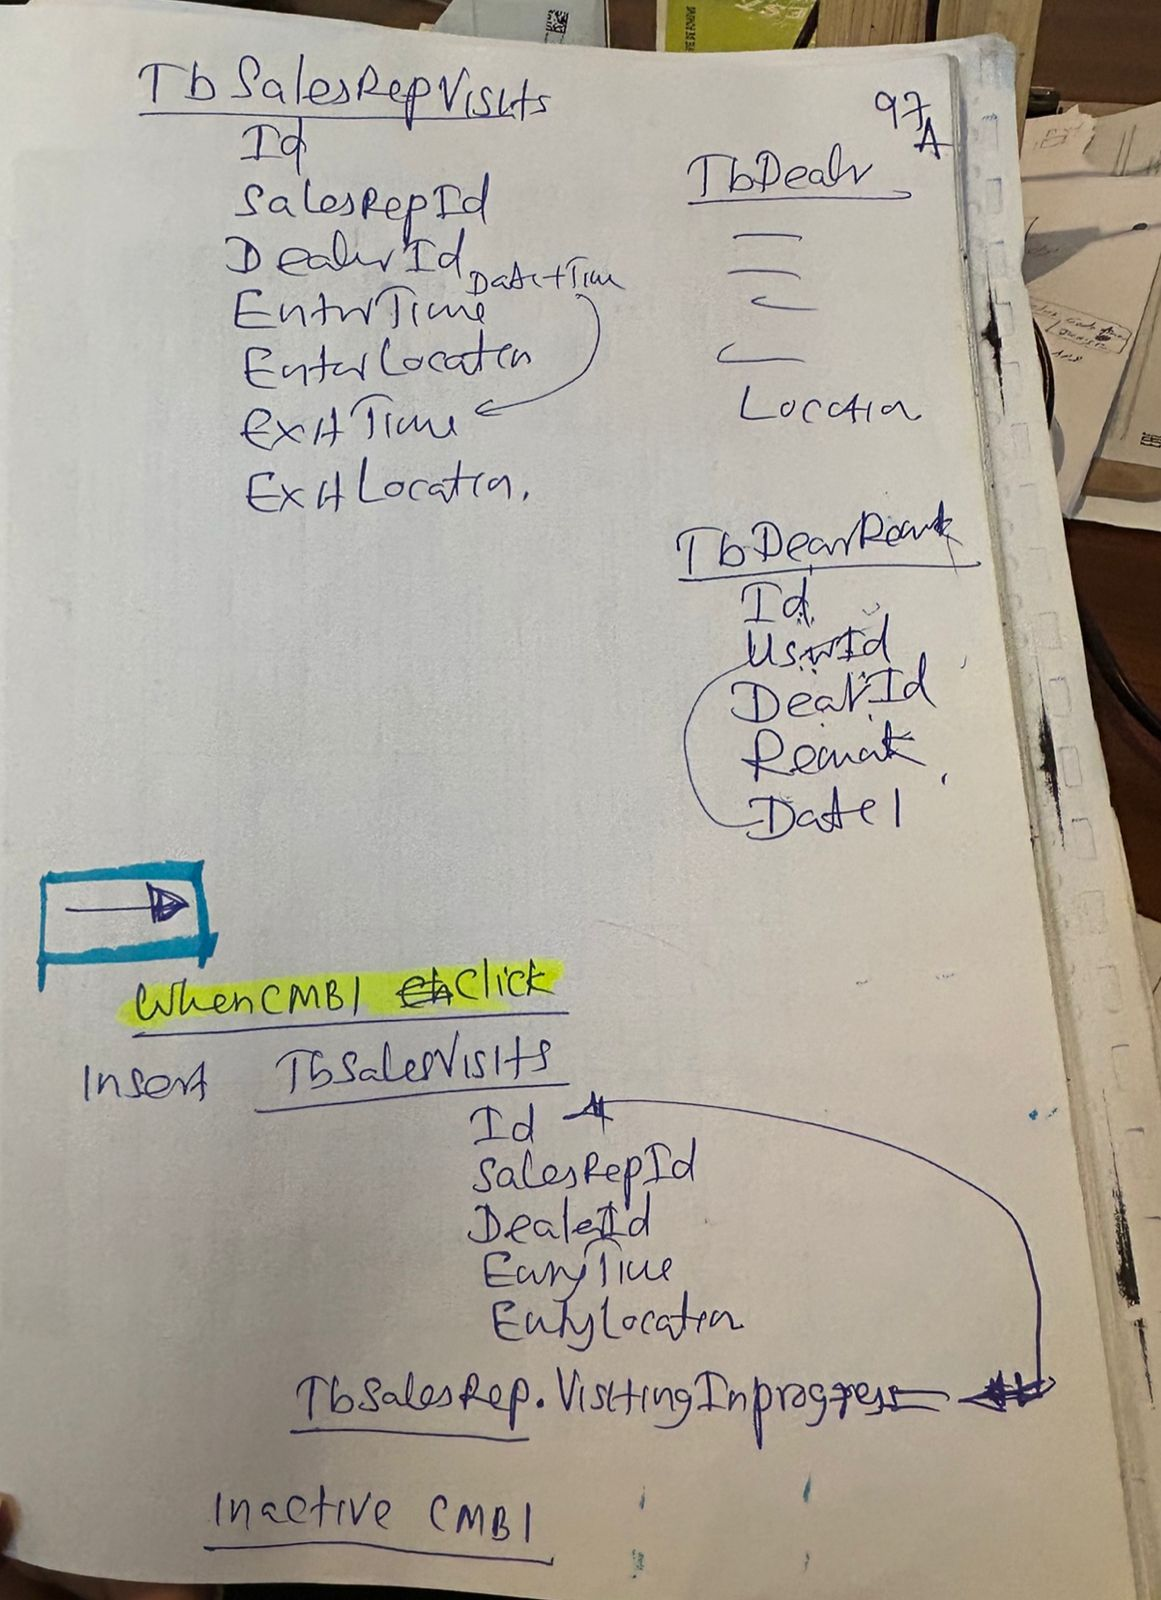 97
A
TbSalesRepVisits
Id
SalesRepId
DealerId
Date+Time
EnterTime
EnterLocation
ExitTime
ExitLocation.
TbDealer
Location
TbDealerRemark
Id
UserId
DealerId
Remark
Date1
When CMB1 Click
Insert TbSalesVisits
Id
SalesRepId
DealerId
EntryTime
EntryLocation
TbSalesRep.VisitingInprogress =
Inactive CMB1